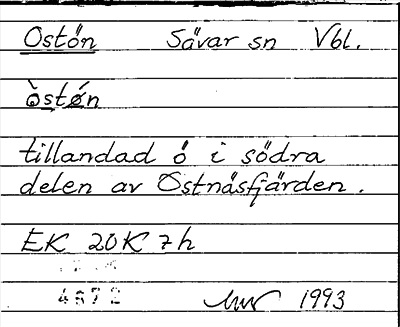 Ostön Sävar sn Vbl.
òstǿn
tillandad ö i södra
delen av Ostnäsfjärden.
EK 20K 7h
4672
1993